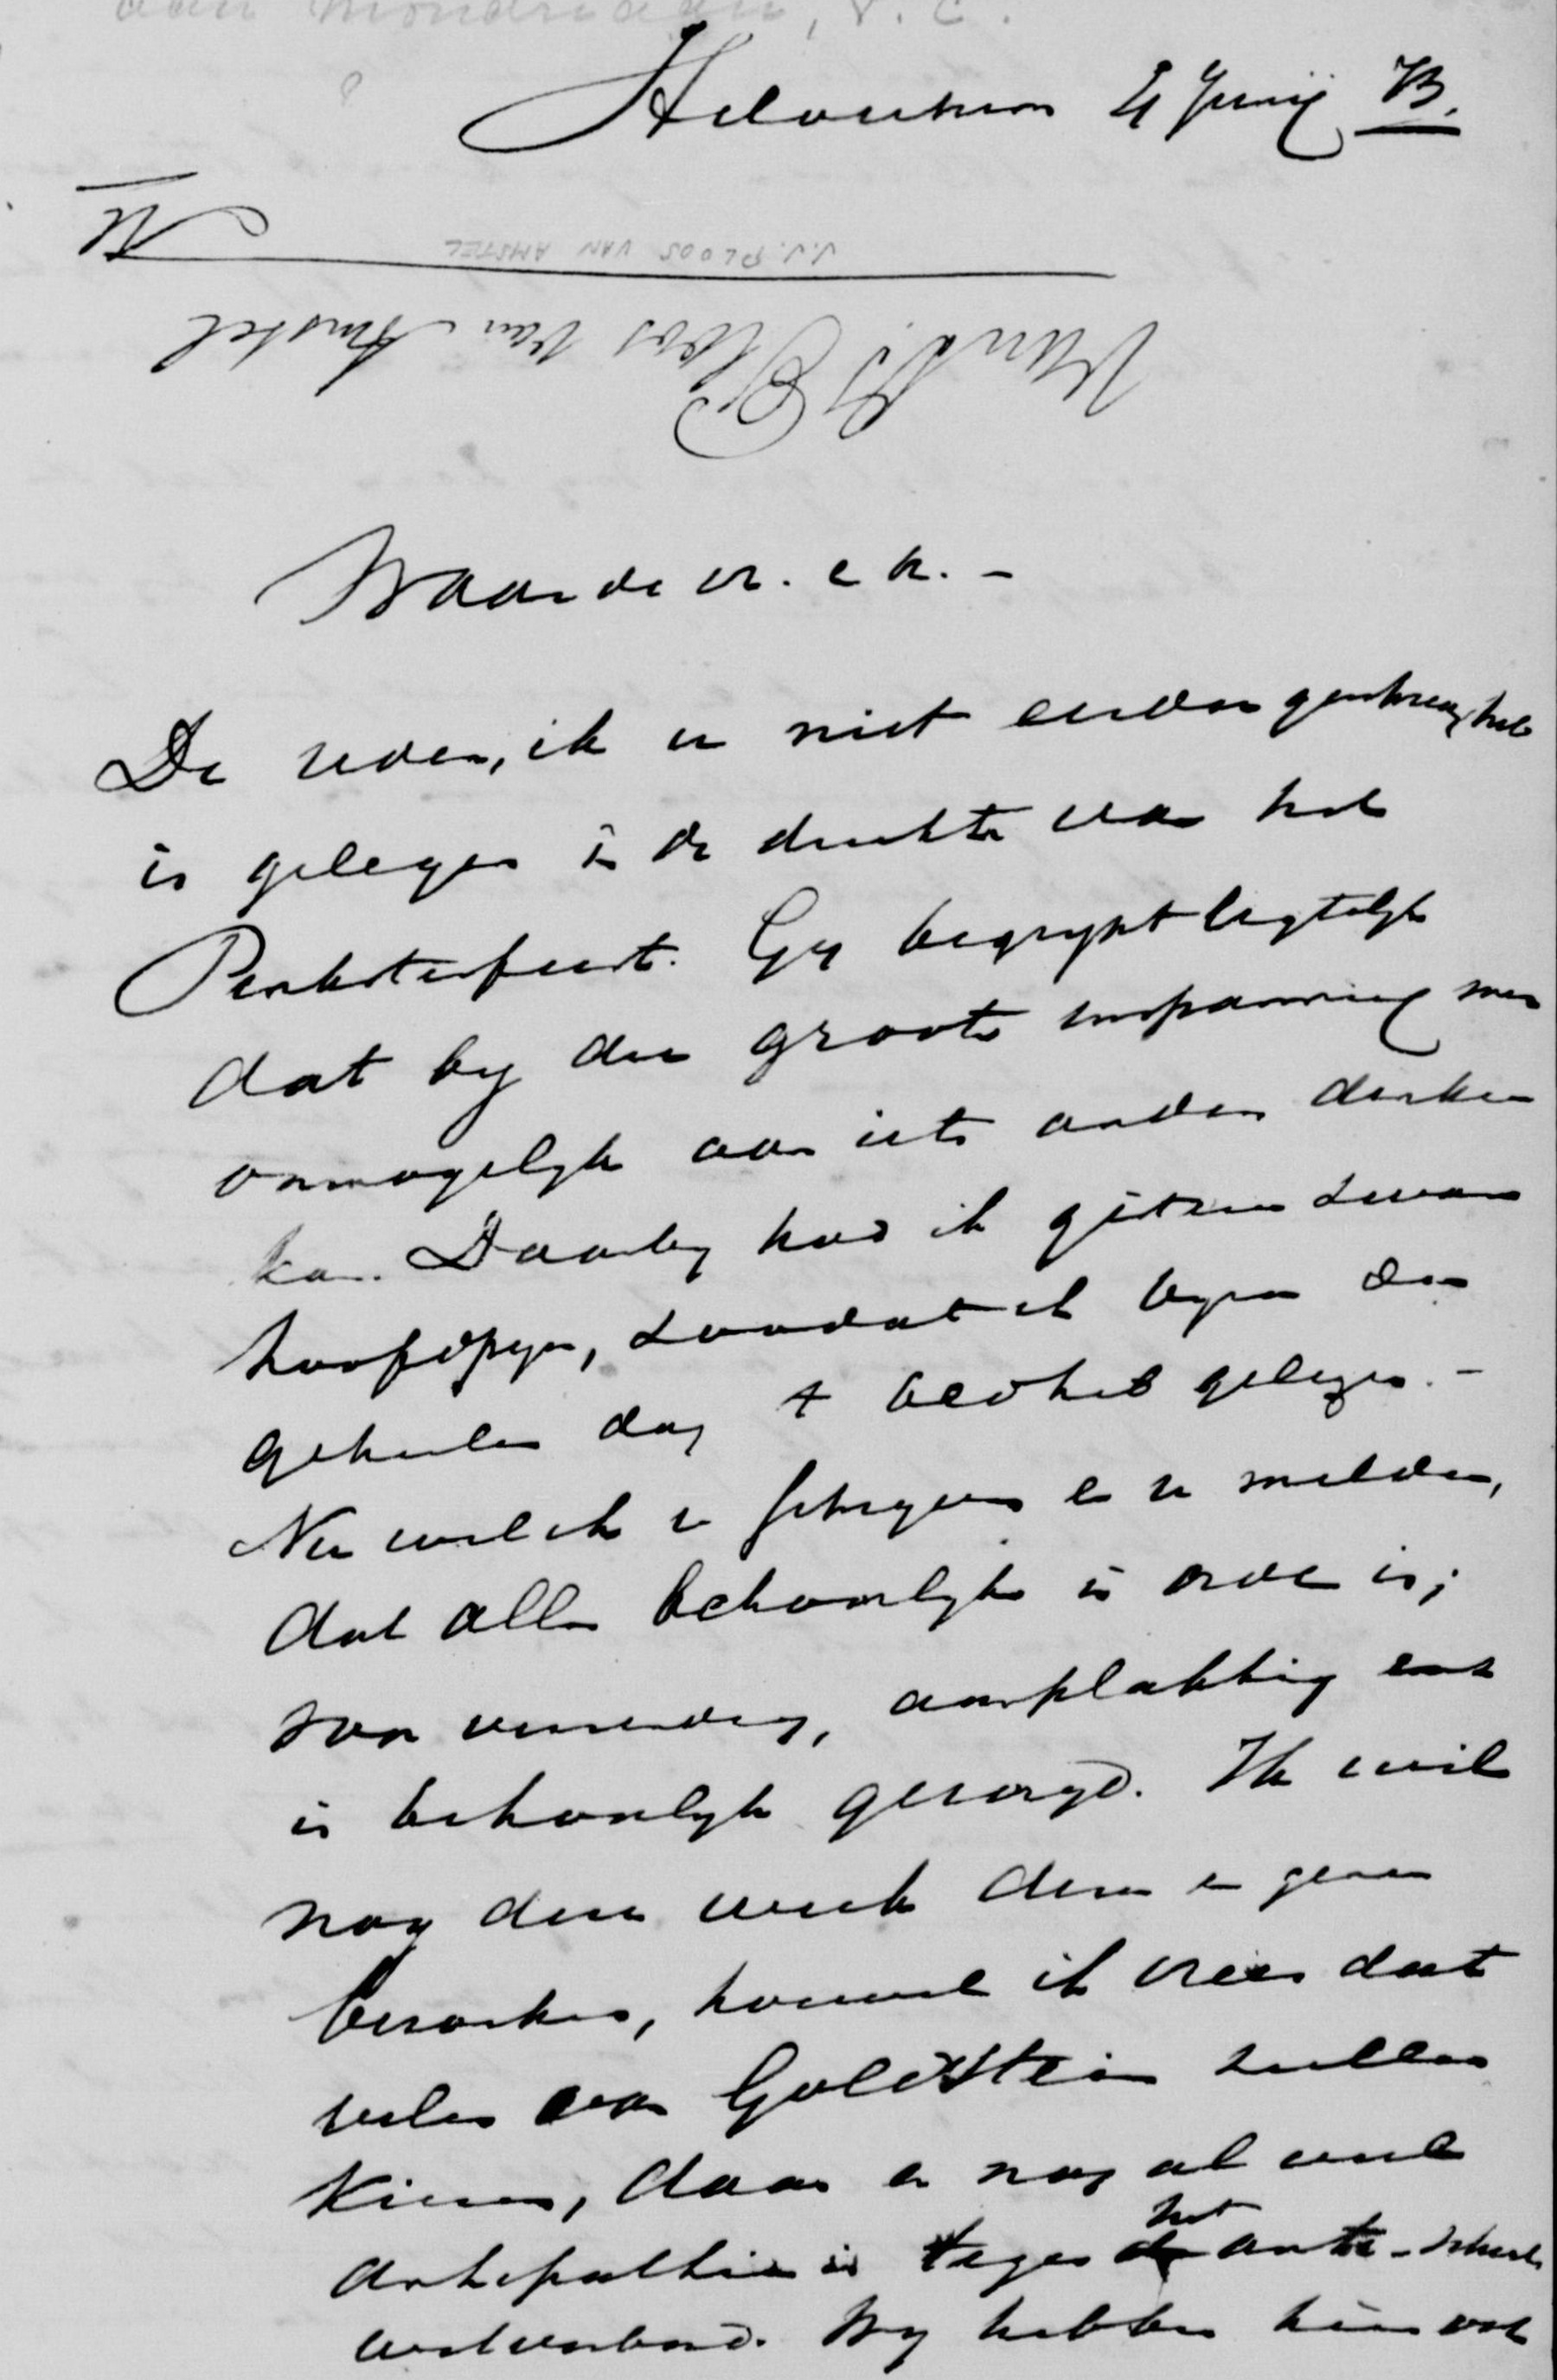 aan Mondriaan, P. C.
Helvoirt 4 Junij 73.
J.J. PLOOS VAN AMSTEL
Van Ds Ploos van Amstel
Waarde vr. e k. -
De reden, ik u niet eerder geschreven heb
is gelegen in de drukte van het
Pinksterfeest. Gij begrijpt ligtelijk
dat bij die groote inspanning men
onmogelijk aan iets anders denken
kan. Daarbij had ik gisteren zware
hoofdpijn, zoodat ik bijna den
geheelen dag te bed heb gelegen. -
Nu wil ik u schrijven en u melden,
dat alles behoorlijk in orde is;
voor verzending, aanplakking enz
is behoorlijk gezorgd. Ik wil
nog deze week dezen en genen
bezoeken, hoewel ik vrees dat
velen van Goldstein zullen
kiezen, daar er nog al veel
antipathie is tegen het anti-school
wetverbond. Wij hebben hier ook